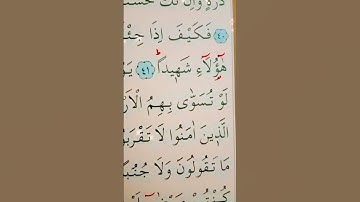 ذَرَّةٍ وَاِنْ تَكُ حَسَنَ
﴿٤٠﴾ فَكَيْفَ اِذَا جِئْ
هٰٓؤُ۬لَٓاءِ شَه۪يداًۜ ﴿٤١﴾ يَوْ
لَوْ تُسَوّٰى بِهِمُ الْاَرْ
الَّذ۪ينَ اٰمَنُوا لَا تَقْرَبُو
مَا تَقُولُونَ وَلَا جُنُباً
كُنْتُمْ